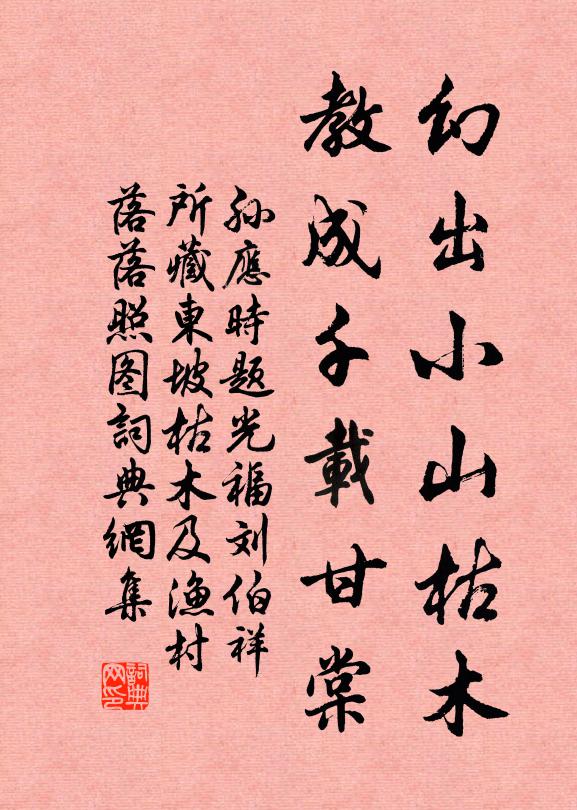 幻出小山枯木
教成千載甘棠
孙應時题光福刘伯祥
所藏東坡枯木及渔村
落落照图詞典網集
詞典网印